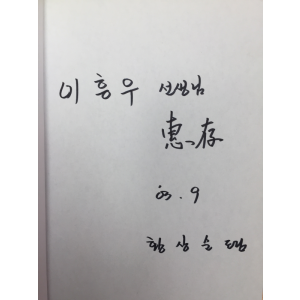 이흥우 선생님
惠存
03. 9
황상순 드림